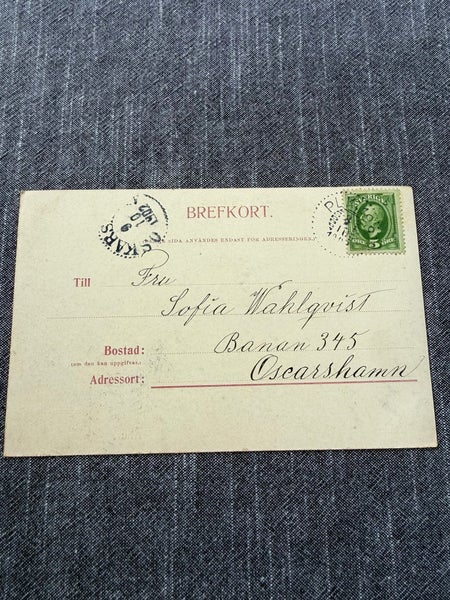 BREFKORT.
SIDA ANVÄNDES ENDAST FÖR ADRESSERINGEN.
SVERIGE
5
ÖRE
ÖRE
1902
10
9
OSKARS
Till Fru
Sofia Wahlqvist
Bostad: Banan 345
(om den kan uppgifvas.)
Adressort: Oscarshamn